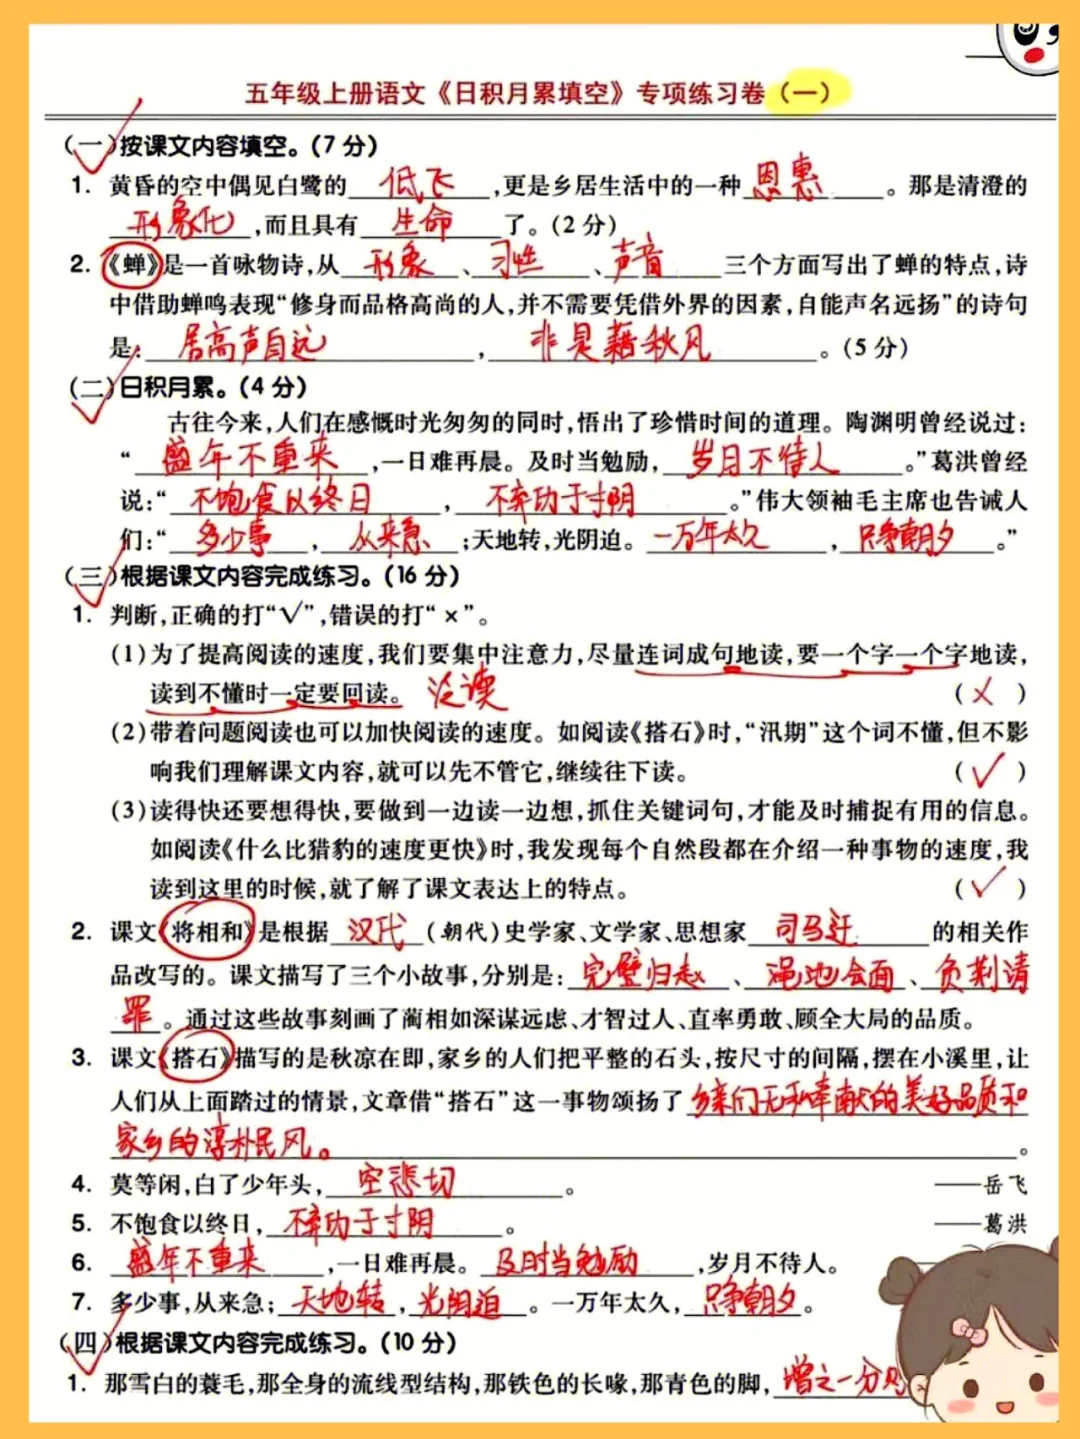 五年级上册语文《日积月累填空》专项练习卷(一)
(一)按课文内容填空。(7分)
1. 黄昏的空中偶见白鹭的 低飞 ,更是乡居生活中的一种 恩惠 。那是清澄的
形象化 ,而且具有 生命 了。(2分)
2. 《蝉》是一首咏物诗,从 形象 、 习性 、 声音 三个方面写出了蝉的特点,诗
中借助蝉鸣表现“修身而品格高尚的人,并不需要凭借外界的因素,自能声名远扬”的诗句
是: 居高声自远 , 非是藉秋风 。(5分)
(二)日积月累。(4分)
古往今来,人们在感慨时光匆匆的同时,悟出了珍惜时间的道理。陶渊明曾经说过:
“ 盛年不重来 ,一日难再晨。及时当勉励, 岁月不待人 。”葛洪曾经
说:“ 不饱食以终日 , 不弃功于寸阴 。”伟大领袖毛主席也告诫人
们:“ 多少事 , 从来急 ;天地转,光阴迫。 一万年太久 , 只争朝夕 。”
(三)根据课文内容完成练习。(16分)
1. 判断,正确的打“√”,错误的打“×”。
(1)为了提高阅读的速度,我们要集中注意力,尽量连词成句地读,要一个字一个字地读,
读到不懂时一定要回读。 泛读 (×)
(2)带着问题阅读也可以加快阅读的速度。如阅读《搭石》时,“汛期”这个词不懂,但不影
响我们理解课文内容,就可以先不管它,继续往下读。 (√)
(3)读得快还要想得快,要做到一边读一边想,抓住关键词句,才能及时捕捉有用的信息。
如阅读《什么比猎豹的速度更快》时,我发现每个自然段都在介绍一种事物的速度,我
读到这里的时候,就了解了课文表达上的特点。 (√)
2. 课文《将相和》是根据 汉代 (朝代)史学家、文学家、思想家 司马迁 的相关作
品改写的。课文描写了三个小故事,分别是: 完璧归赵 、 渑池会面 、 负荆请
罪 。通过这些故事刻画了蔺相如深谋远虑、才智过人、直率勇敢、顾全大局的品质。
3. 课文《搭石》描写的是秋凉在即,家乡的人们把平整的石头,按尺寸的间隔,摆在小溪里,让
人们从上面踏过的情景,文章借“搭石”这一事物颂扬了 乡亲们无私奉献的美好品质和
家乡的淳朴民风。 。
4. 莫等闲,白了少年头, 空悲切 。 ——岳飞
5. 不饱食以终日, 不弃功于寸阴 。 ——葛洪
6. 盛年不重来 ,一日难再晨。 及时当勉励 ,岁月不待人。
7. 多少事,从来急; 天地转 , 光阴迫 。一万年太久, 只争朝夕 。
(四)根据课文内容完成练习。(10分)
1. 那雪白的蓑毛,那全身的流线型结构,那铁色的长喙,那青色的脚, 增之一分则